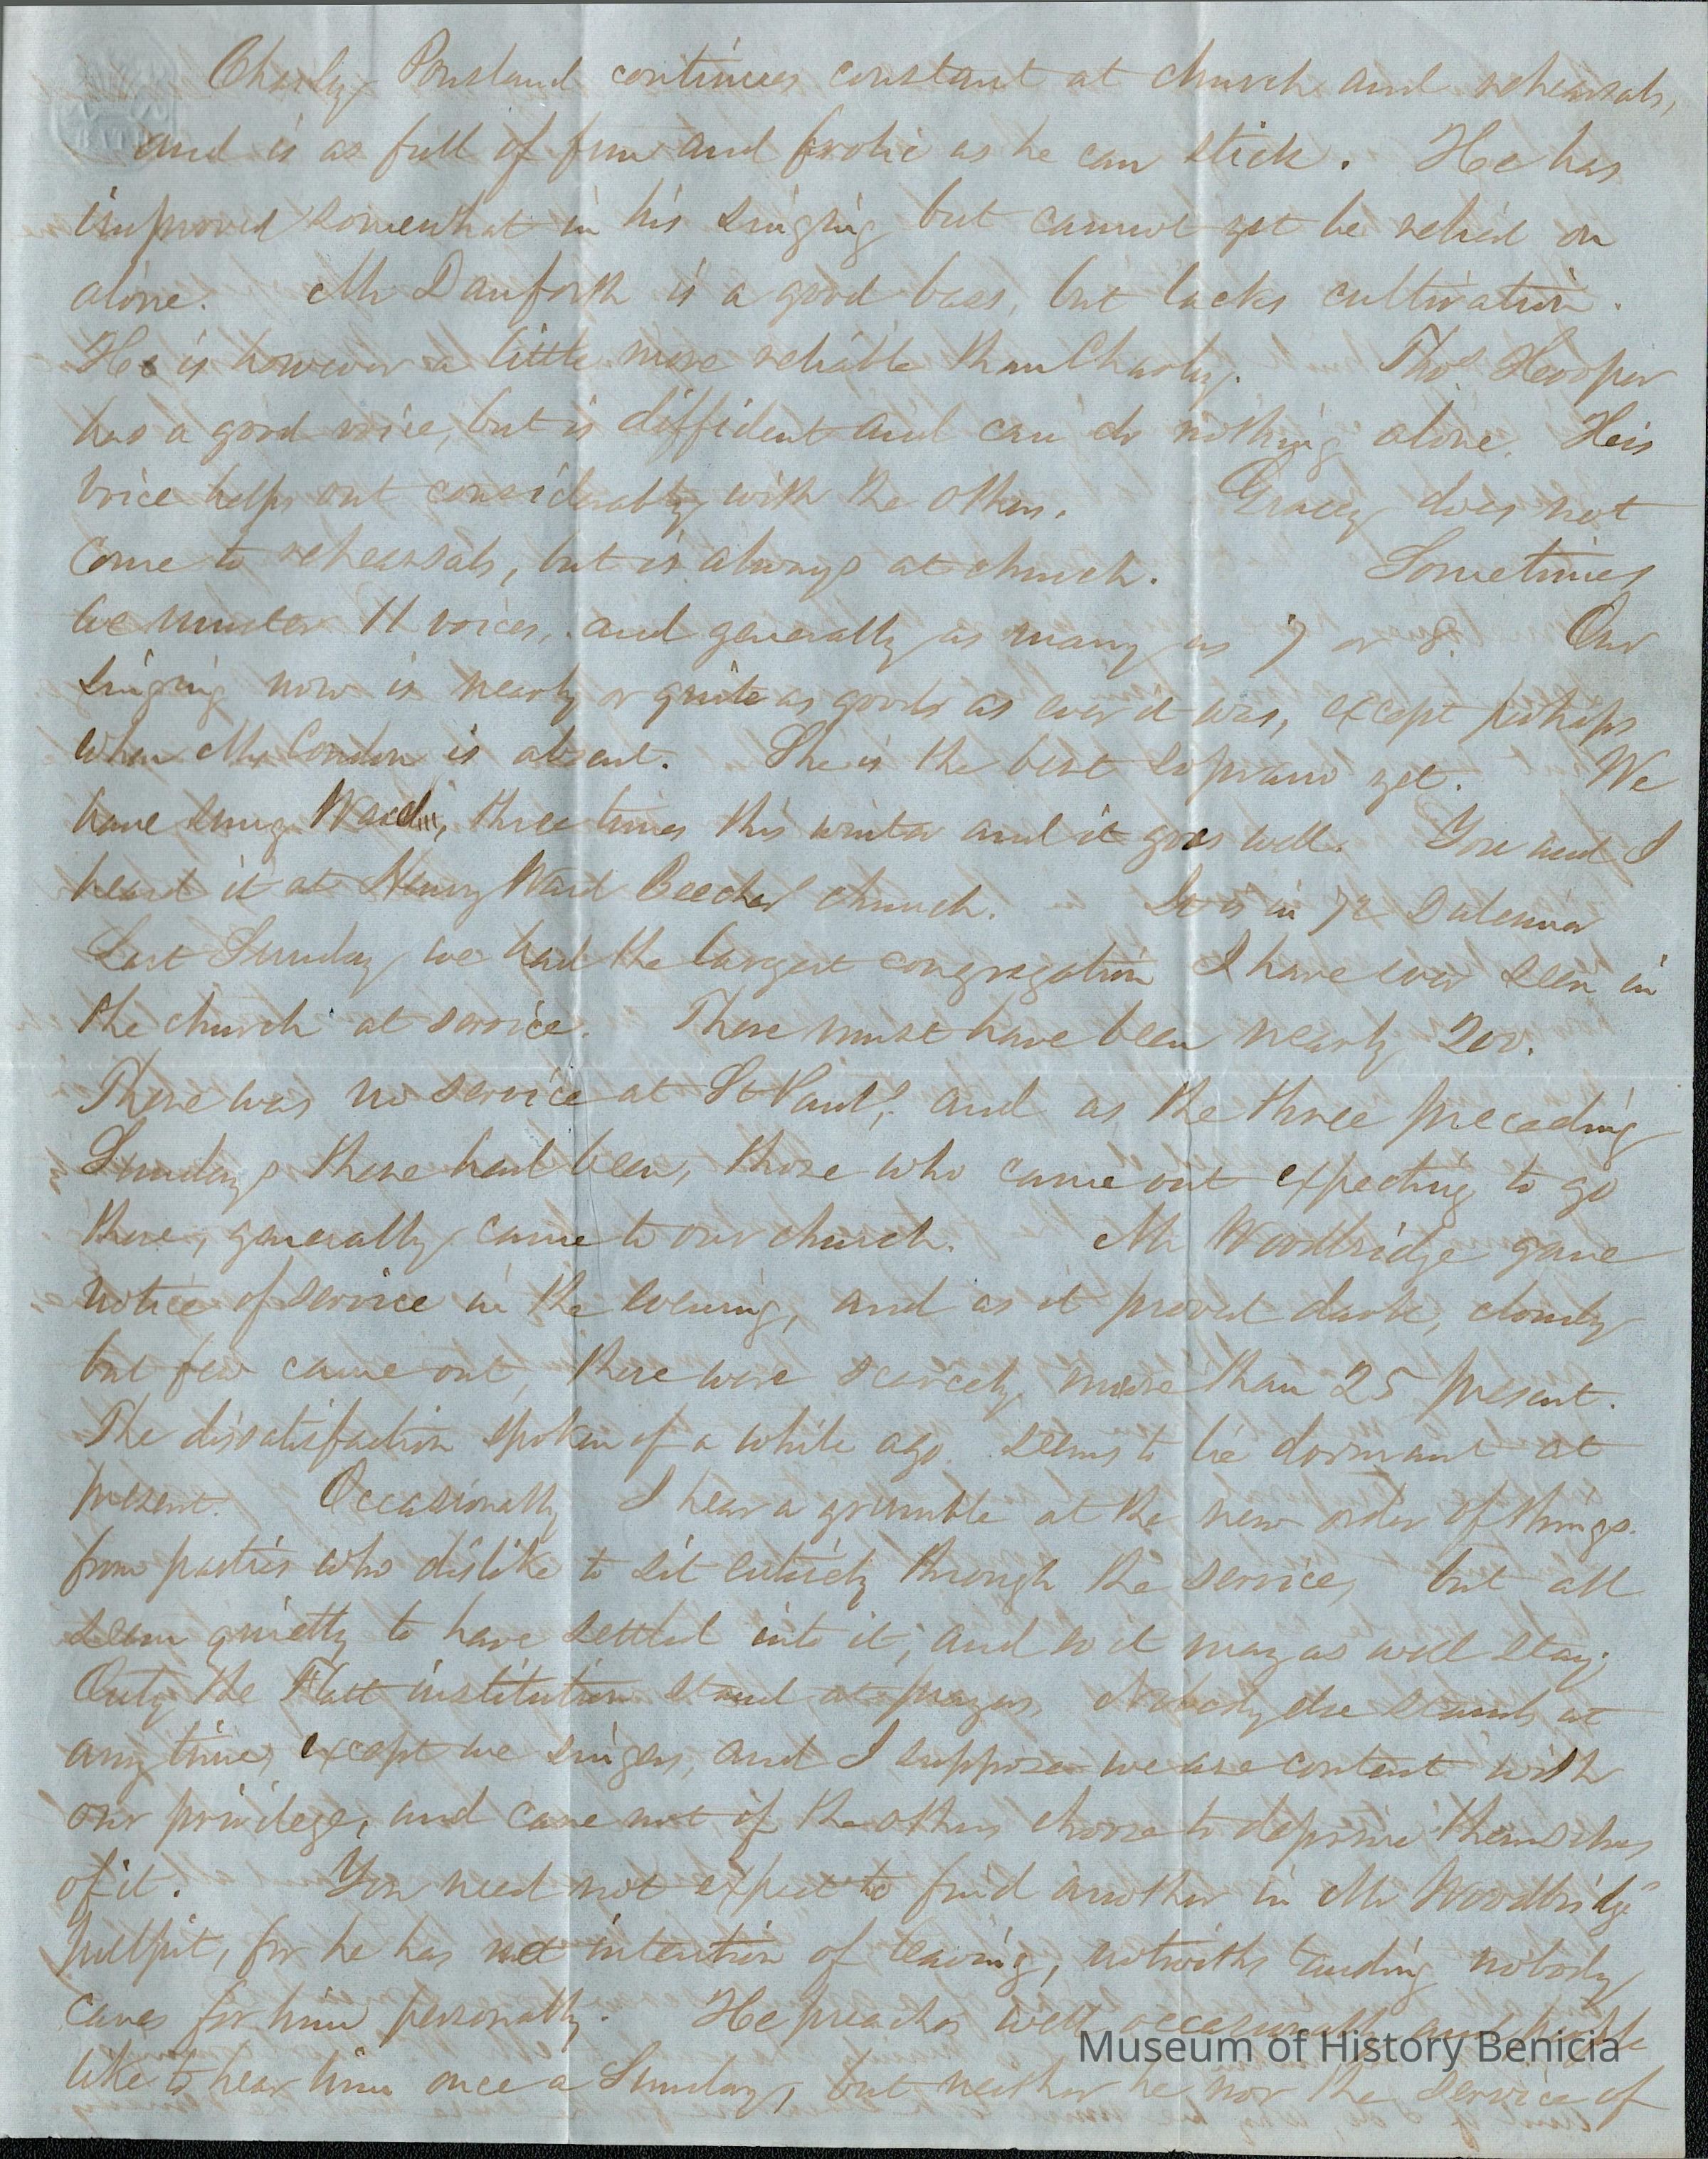 Charly Poursland continues constant at church and rehearsals,
and is as full of fun and frolic as he can stick. He has
improved somewhat in his singing but cannot yet be relied on
alone. Mr Danforth is a good bass, but lacks cultivation.
He is however a little more reliable than Charly. Thos. Hooper
has a good voice, but is diffident and can do nothing alone. His
voice helps out considerably with the others. Gracey does not
come to rehearsals, but is always at church. Sometimes
we muster 11 voices, and generally as many as 7 or 8. Our
singing now is nearly or quite as good as ever it was, except perhaps
when Mrs Condon is absent. She is the best soprano yet. We
have sung three times this winter and it goes well. You and I
heard it at Henry Ward Beecher church. It is in
Last Sunday we had the largest congregation I have ever seen in
the church at service. There must have been nearly 200.
There was no service at St Paul's, and as the three preceding
Sundays there had been, those who came out expecting to go
there, generally came to our church. Mr Woodbridge gave
notice of service in the evening, and as it proved dark, cloudy
but few came out, there were scarcely more than 25 present.
The dissatisfaction spoken of a while ago seems to be dormant at
present. Occasionally I hear a grumble at the new order of things
from parties who dislike to sit entirely through the service, but all
seem quietly to have settled into it, and so it may as well stay.
Only the institution stand at prayers. Nobody else stands at
any time, except we singers, and I suppose we are content with
our privilege, and care not if the others choose to deprive themselves
of it. You need not expect to find another in Mr Woodbridge
pulpit, for he has not intention of leaving, notwithstanding nobody
cares for him personally. He preaches well occasionally and people
like to hear him once a Sunday, but neither he nor the service of
Museum of History Benicia